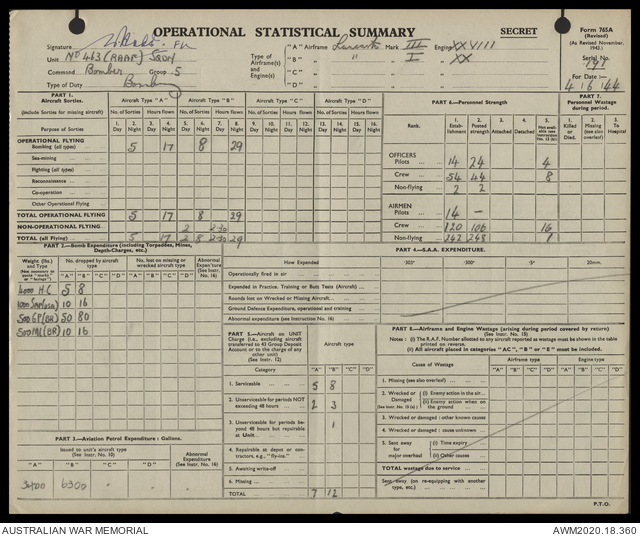 OPERATIONAL STATISTICAL SUMMARY
SECRET
Form 765A
(Revised)
(As Revised November, 1943.)
Serial No.
191
For Date :—
4 6 44
Signature
Unit No 463 (RAAF) Sqdn
Command Bomber Group 5
Type of Duty Bombing
Type of Airframe(s) and Engine(s)
"A" Airframe Lancaster Mark III Engine XXVIII
"B" " " I " XX
"C" " " "
"D" " " "
PART 1.
Aircraft Sorties.
(include Sorties for missing aircraft)
Purpose of Sorties
Aircraft Type "A" Aircraft Type "B" Aircraft Type "C" Aircraft Type "D"
No. of Sorties Hours flown No. of Sorties Hours flown No. of Sorties Hours flown No. of Sorties Hours flown
1. Day 2. Night 3. Day 4. Night 5. Day 6. Night 7. Day 8. Night 9. Day 10. Night 11. Day 12. Night 13. Day 14. Night 15. Day 16. Night
OPERATIONAL FLYING
Bombing (all types) 5 17 8 29
Sea-mining
Fighting (all types)
Reconnaissance
Co-operation
Other Operational Flying
TOTAL OPERATIONAL FLYING 5 17 8 29
NON-OPERATIONAL FLYING 2 2·30
TOTAL (all Flying) 5 17 2 8 2·30 29
PART 6.—Personnel Strength
Rank. 1. Establishment 2. Posted strength 3. Attached 4. Detached 5. Not available (see Instruction No. 13 (b))
OFFICERS
Pilots 14 24 4
Crew 54 44 8
Non-flying 2 2
AIRMEN
Pilots 14 –
Crew 120 106 16
Non-flying 242 248 1
PART 7.
Personnel Wastage during period.
1. Killed or Died. 2. Missing (see also over) 3. To Hospital
PART 2.—Bomb Expenditure (including Torpedoes, Mines, Depth-Charges, etc.)
Weight (lbs.) and Type
No. dropped by aircraft type
No. lost on missing or wrecked aircraft type
Abnormal Expenditure (See Instr. No. 16)
"A" "B" "C" "D" "A" "B" "C" "D"
4000 H.C 5 8
10 16
500 GP(BR) 50 80
10 16
PART 4.—S.A.A. EXPENDITURE.
How Expended ·303" ·300" ·5" 20mm.
Operationally fired in air
Expended in Practice, Training or Butt Tests (Aircraft)
Rounds lost on Wrecked or Missing Aircraft
Ground Defence Expenditure, operational and training
Abnormal expenditure (see Instruction No. 16)
PART 5.—Aircraft on UNIT Charge (i.e., excluding aircraft transferred to 43 Group Deposit Account or to the charge of any other unit) (See Instr. 12)
Aircraft type
Category "A" "B" "C" "D"
1. Serviceable 5 8
2. Unserviceable for periods NOT exceeding 48 hours 2 3
3. Unserviceable for periods beyond 48 hours but repairable at Unit 1
4. Repairable at depot or contractors, e.g., "fly-ins."
5. Awaiting write-off
6. Missing
TOTAL 7 12
PART 8.—Airframe and Engine Wastage (arising during period covered by return)
(See Instr. No. 15)
Notes : (i) The R.A.F. Number allotted to any aircraft reported as wastage must be shown in the table printed on reverse.
(ii) All aircraft placed in categories "AC", "B" or "E" must be included.
Cause of Wastage
Airframe type Engine type
"A" "B" "C" "D" "A" "B" "C" "D"
1. Missing (see also overleaf)
2. Wrecked or Damaged (See Instr. No. 15 (e))
(i) Enemy action in the air
(ii) Enemy action when on the ground
3. Wrecked or damaged : other known causes
4. Wrecked or damaged : cause unknown
5. Sent away for major overhaul
(i) Time expiry
(ii) Other causes
TOTAL wastage due to service
Sent away (on re-equipping with another type, etc.)
PART 3.—Aviation Petrol Expenditure : Gallons.
Issued to unit's aircraft type
(See Instr. No. 10)
Abnormal Expenditure (See Instr. No. 16)
"A" "B" "C" "D"
6300
P.T.O.
AUSTRALIAN WAR MEMORIAL
AWM2020.18.360